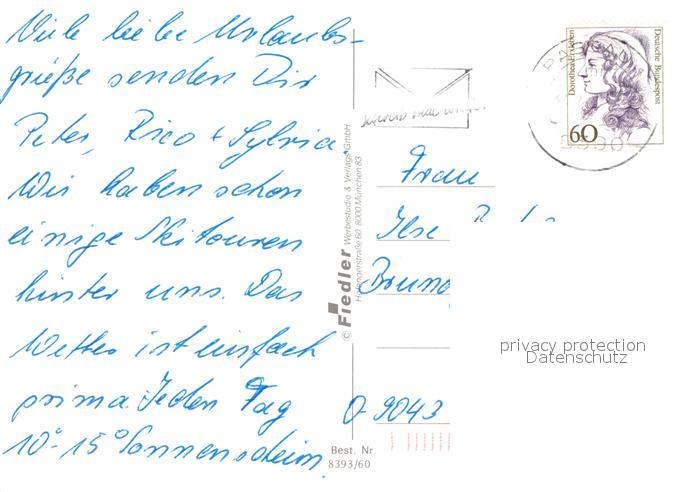 Viele liebe Urlaubs-
grüße senden Dir
Peter, Rico + Sylvia.
Wir haben schon
einige Skitouren
hinter uns. Das
Wetter ist einfach
prima. Jeden Tag
10°-15° Sonnenschein.
© Fiedler Werbestudio & Verlags GmbH
8000 München 83
Best. Nr.
8393/60
Schreib mal wieder
Dorothea Erxleben
Deutsche Bundespost
60
Frau
Ilse
Bruno
O-9043
privacy protection
Datenschutz